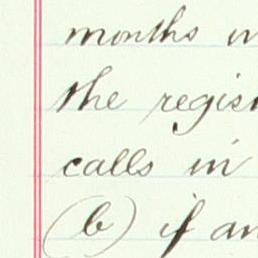 months
the regis
calls in
(b) if an